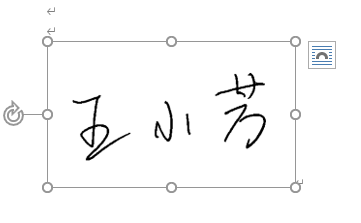 王小芳